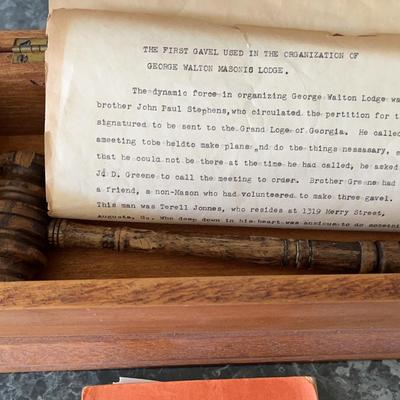 THE FIRST GAVEL USED IN THE ORGANIZATION OF
GEORGE WALTON MASONIS LODGE.
The dynamic force in organizing George Walton Lodge wa
brother John Paul Stephens,who circulated the petition for t
signatured to be sent to the Grand Loge of Georgia. He calle
ameeting tobe heldto make plans nd do the things nesssasary,
that he could not be there at the time he had called, he asked
J. D. Greene to call the meeting to order. Brother Greene had
a friend, a non-Mason who had volunteered to make three gavel.
This man was Terell Jonnes, who resides at 1319 Merry Street,
Augusta, Ga. Who deep down in his heart was anxious to do somethi